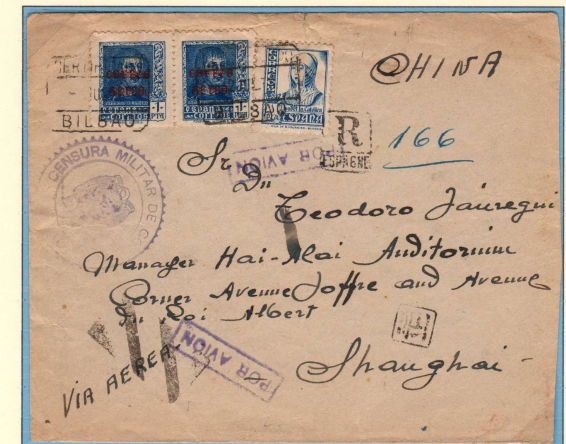 CHINA
CORREO
AEREO
CORREO
AEREO
ESPAÑA
BILBAO
R
ESPAGNE
166
CENSURA MILITAR DE
POR AVION
Sr.
Dn
Teodoro Jauregui
Manager Hai-Alai Auditorium
Corner Avenue Joffre and Avenue
Du Roi Albert
Shanghai-
POR AVION
VIA AEREA